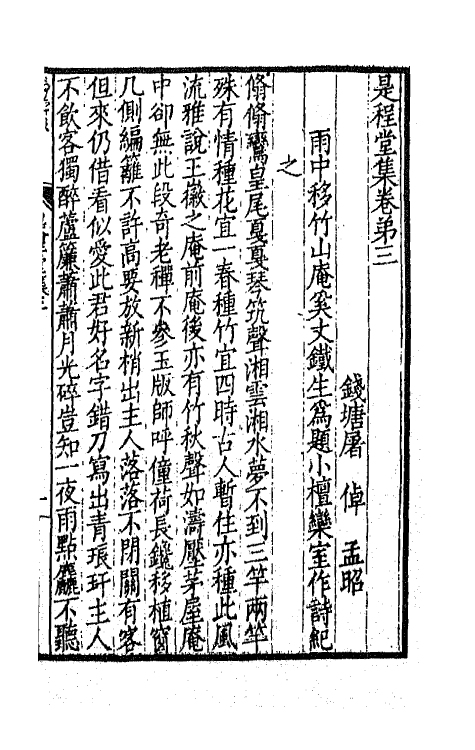 是程堂集卷弟三
錢塘屠 倬 孟昭
雨中移竹山庵奚丈鐵生爲題小檀欒室作詩紀
之
翛翛鸞皇尾戛戛琴筑聲湘雲湘水夢不到三竿兩竿
殊有情種花宜一春種竹宜四時古人暫住亦種此風
流雅說王徽之庵前庵後亦有竹秋聲如濤壓茅屋庵
中卻無此段奇老禪不參玉版師呼僮荷長鑱移植窗
几側編籬不許高要放新梢出主人落落不閉關有客
但來仍借看似愛此君好名字錯刀寫出青琅玕主人
不飲客獨醉蘆簾蕭蕭月光碎豈知一夜雨點麤不聽